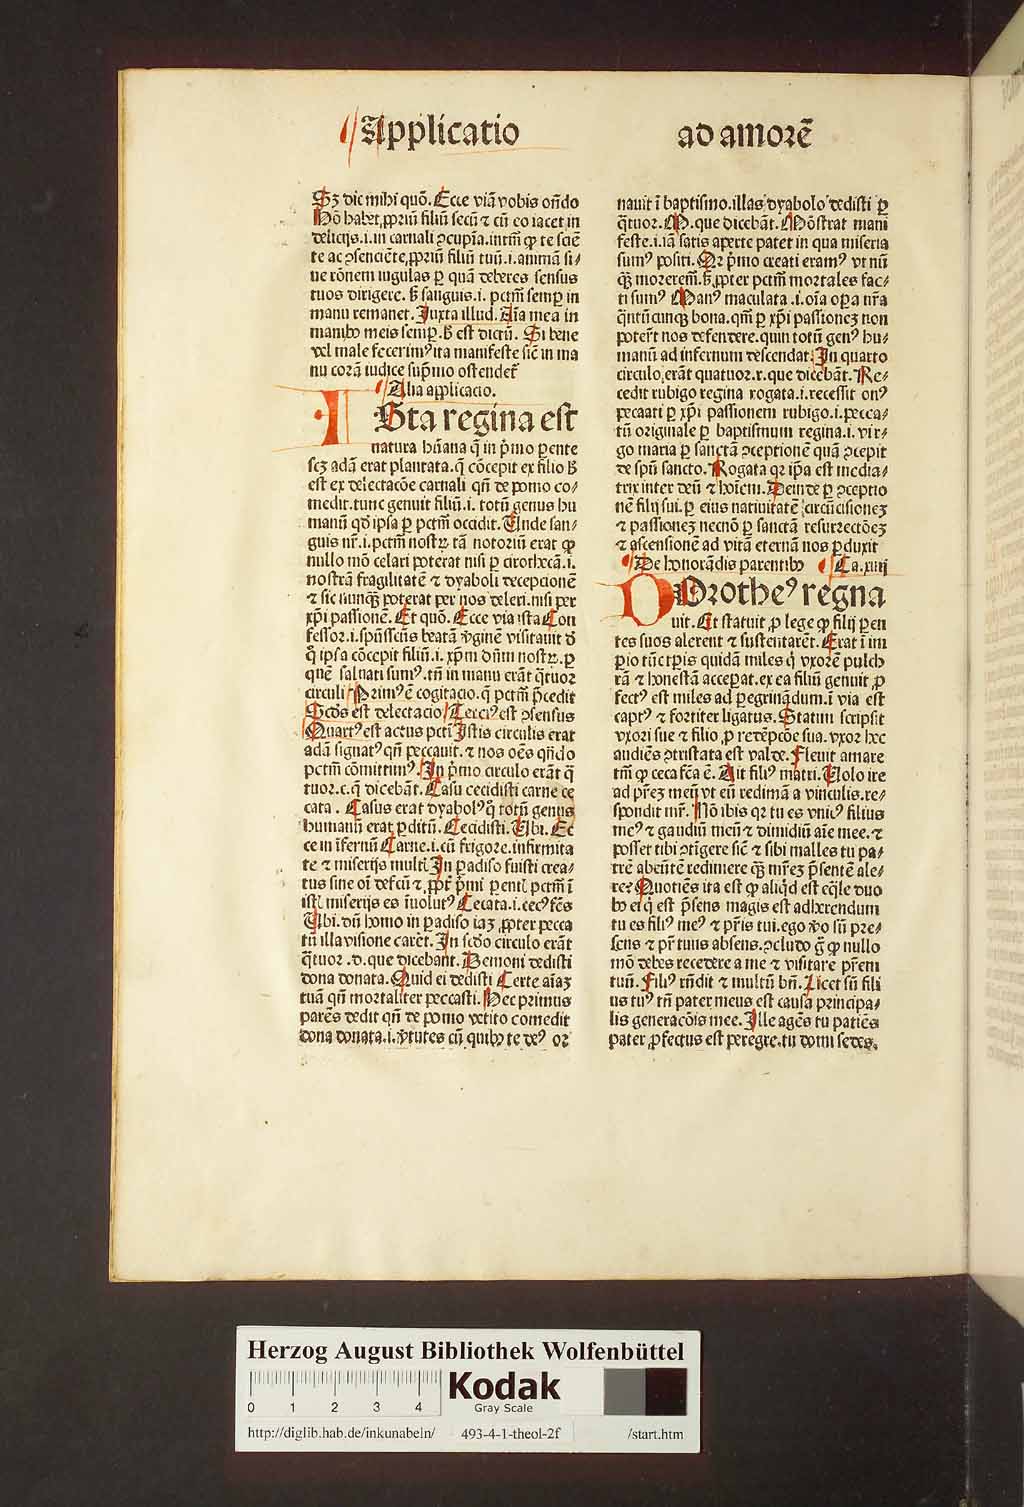 Applicatio ad amorē
Sꝫ dic mihi quō. Ecce viā vobis onđo
Hō habet ꝓpriū filiū secū ⁊ cū eo iacet in
delicijs .i. in carnali ꝯcupīa. intm̄ ꝙ te sciē
te ac ꝯsenciēte ꝓpriū filiū tuū .i. animā si⸗
ue rōnem iugulas ꝑ quā deberes sensus
tuos dirigere. ß sanguis .i. pctm̄ semꝑ in
manu remanet. Juxta illud. Aīa mea in
manibꝰ meis semꝑ. ß est dictū. Si bene
vel male fecerimꝰ ita manifeste sic̄ in ma
nu corā iudice sup̄mo ostendet᷑
Alia applicacio.
ISta regina est
natura hūana q̄ in p̄mo ꝑente
scꝫ adā erat plantata. q̄ cōcepit ex filio ß
est ex delectacōe carnali qn̄ de pomo co⸗
medit. tunc genuit filiū .i. totū genus hu
manū qđ ipsa ꝑ pctm̄ occidit. Unde san⸗
guis nr̄ .i. pctm̄ nostꝝ tā notoriū erat ꝙ
nullo mō celari poterat nisi ꝑ cirothecā .i.
nostrā fragilitatē ⁊ dyaboli decepcionē
⁊ sic nunqꝫ poterat per nos deleri. nisi per
xp̄i passionē. Et quō. Ecce via ista Con
fessor .i. spūssc̄us beatā v̄ginē visitauit đ
q̄ ipsa cōcepit filiū .i. xp̄m dn̄m nostꝝ. ꝑ
quē saluati sumꝰ. tn̄ in manu erāt q̄tuor
circuli Primꝰ ē cogitacio. q̄ pctm̄ p̄cedit
Scđs est delectacio Terciꝰ est ꝯsensus
Quartꝰ est actus pcti Istis circulis erat
adā signatꝰ qn̄ peccauit. ⁊ nos oēs qn̄do
pctm̄ cōmittimꝰ. In p̄mo circulo erāt q̄
tuor .c. q̄ dicebāt. Casu cecidisti carne ce
cata. Casus erat dyabolꝰ q̄ totū genus
humanū erat ꝑditū. Cecidisti. Ubi. Ec
ce in īfernū Carne .i. cū frigore. infirmita
te ⁊ miserijs multi. In ꝑadiso fuisti crea⸗
tus sine oī defcū ⁊ ꝓpt᷑ p̄mi ꝑentꝭ pctm̄ ī
istꝭ miserijs es īuolutꝰ Cecata .i. cecꝰ fc̄s
Ubi. dū homo in ꝑadiso iaꝫ ꝓpter pecca
tū illa visione caret. In scđo circulo erāt
q̄tuor .d. que dicebant. Demoni dedisti
dona donata. Quid ei dedisti Certe aīaꝫ
tuā qn̄ mortaliter peccasti. Hec primus
parēs dedit qn̄ de pomo vetito comedit
dona donata .i. v̄tutes cū quibꝰ te deꝰ or
nauit ī baptismo. illas dyabolo dedisti ꝑ
q̄tuor .M. que dicebāt. Mōstrat mani
feste .i. iā satis aperte patet in qua miseria
sumꝰ positi. Qꝛ p̄mo creati eramꝰ vt nū
qꝫ moreremͬ. ß ꝓpter pctm̄ mortales fac⸗
ti sumꝰ Manꝰ maculata .i. oīa oꝑa nr̄a
q̄ntūcunqꝫ bona. qm̄ ꝑ xp̄i passioneꝫ non
poterͭ nos defendere. quin totū genꝰ hu⸗
manū ad infernum descendat. In quarto
circulo, erāt quatuor .r. que dicebāt. Re⸗
cedit rubigo regina rogata .i. recessit onꝰ
peccati ꝑ xp̄i passionem rubigo .i. pecca⸗
tū originale ꝑ baptismum regina .i. vir⸗
go maria ꝑ sanctā ꝯceptionē quā ꝯcepit
de spū sancto. Rogata qꝛ ip̄a est media⸗
trix inter deū ⁊ hoīem. Deinde ꝑ ꝯceptio
nē filij sui. ꝑ eius natiuitatē circūcisioneꝫ
⁊ passioneꝫ necnō ꝑ sanctā resurrectōeꝫ
⁊ ascensionē ad vitā eternā nos ꝑduxit
De honorādis parentibꝰ Ca. xiiij
DOrotheꝰ regna
uit. Et statuit ꝓ lege ꝙ filij ꝑen
tes suos alerent ⁊ sustentarēt. Erat ī im
ꝑio tūc tꝑis quidā miles q̄ vxorē pulch
rā ⁊ honestā acceꝑat. ex ea filiū genuit ꝓ
fectꝰ est miles ad ꝑegrinādum. ī via est
captꝰ ⁊ fortiter ligatus. Statim scripsit
vxori sue ⁊ filio ꝓ redēpcōe sua. vxor hec
audiēs ꝯtristata est valde. Fleuit amare
tm̄ ꝙ ceca fc̄a ē. Ait filiꝰ matri. Uolo ire
ad pr̄eꝫ meū vt eū redimā a vinculis. re⸗
spondit mr̄. Nō ibis qꝛ tu es vnicꝰ filius
meꝰ ⁊ gaudiū meū ⁊ dimidiū aīe mee. ⁊
posset tibi ꝯtīgere sic̄ ⁊ sibi malles tu pa⸗
trē absētē redimere qꝫ mr̄eꝫ p̄sentē ale⸗
re? Quotiēs ita est ꝙ aliqđ est eq̄le duo
bꝰ ei q̄ est p̄sens magis est adherendum
tu es filiꝰ meꝰ ⁊ pr̄is tui. ego v̄o sū pre⸗
sens ⁊ pr̄ tuus absens. ꝯcludo g̊ ꝙ nullo
mō debes recedere a me ⁊ visitare pr̄em
tuū. Filiꝰ rn̄dit ⁊ multū bn̄. Licet sū fili
us tuꝰ tn̄ pater meus est causa principa⸗
lis generacōis mee. Ille agēs tu patiēs
pater ꝓfectus est peregre. tu domi sedes.
Herzog August Bibliothek Wolfenbüttel
0 1 2 3 4
Kodak
Gray Scale
http://diglib.hab.de/inkunabeln/ 493-4-1-theol-2f /start.htm